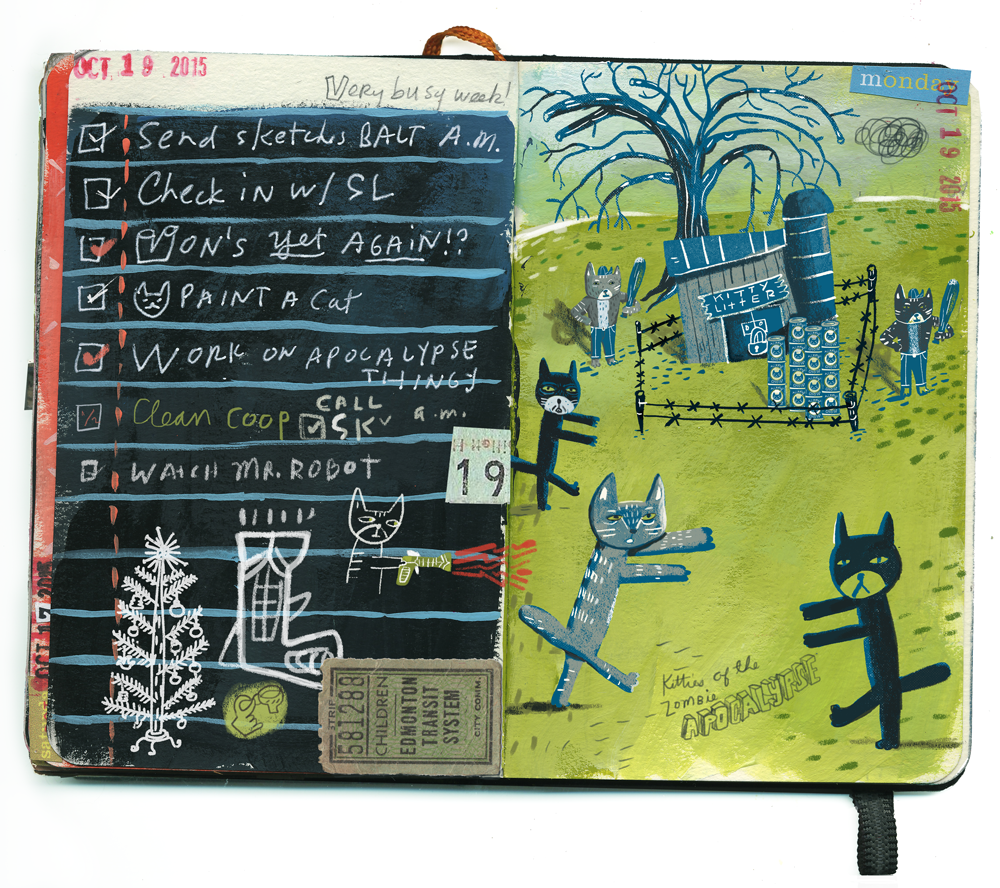 OCT 19 2015
Very busy week!
Send sketchs BALT A.M.
Check in w/ SL
VON'S yet AGAIN!?
PAINT A Cat
WORK ON APOCALYPSE
THINGY
Clean coop CALL SK a.m.
WATCH MR. ROBOT
HIGH
19
STRIP
581288
CHILDREN
EDMONTON
TRANSIT
SYSTEM
CITY COMM.
monday
OCT 19 2015
KITTY
LITTER
Kitties of the
Zombie
APOCALYPSE